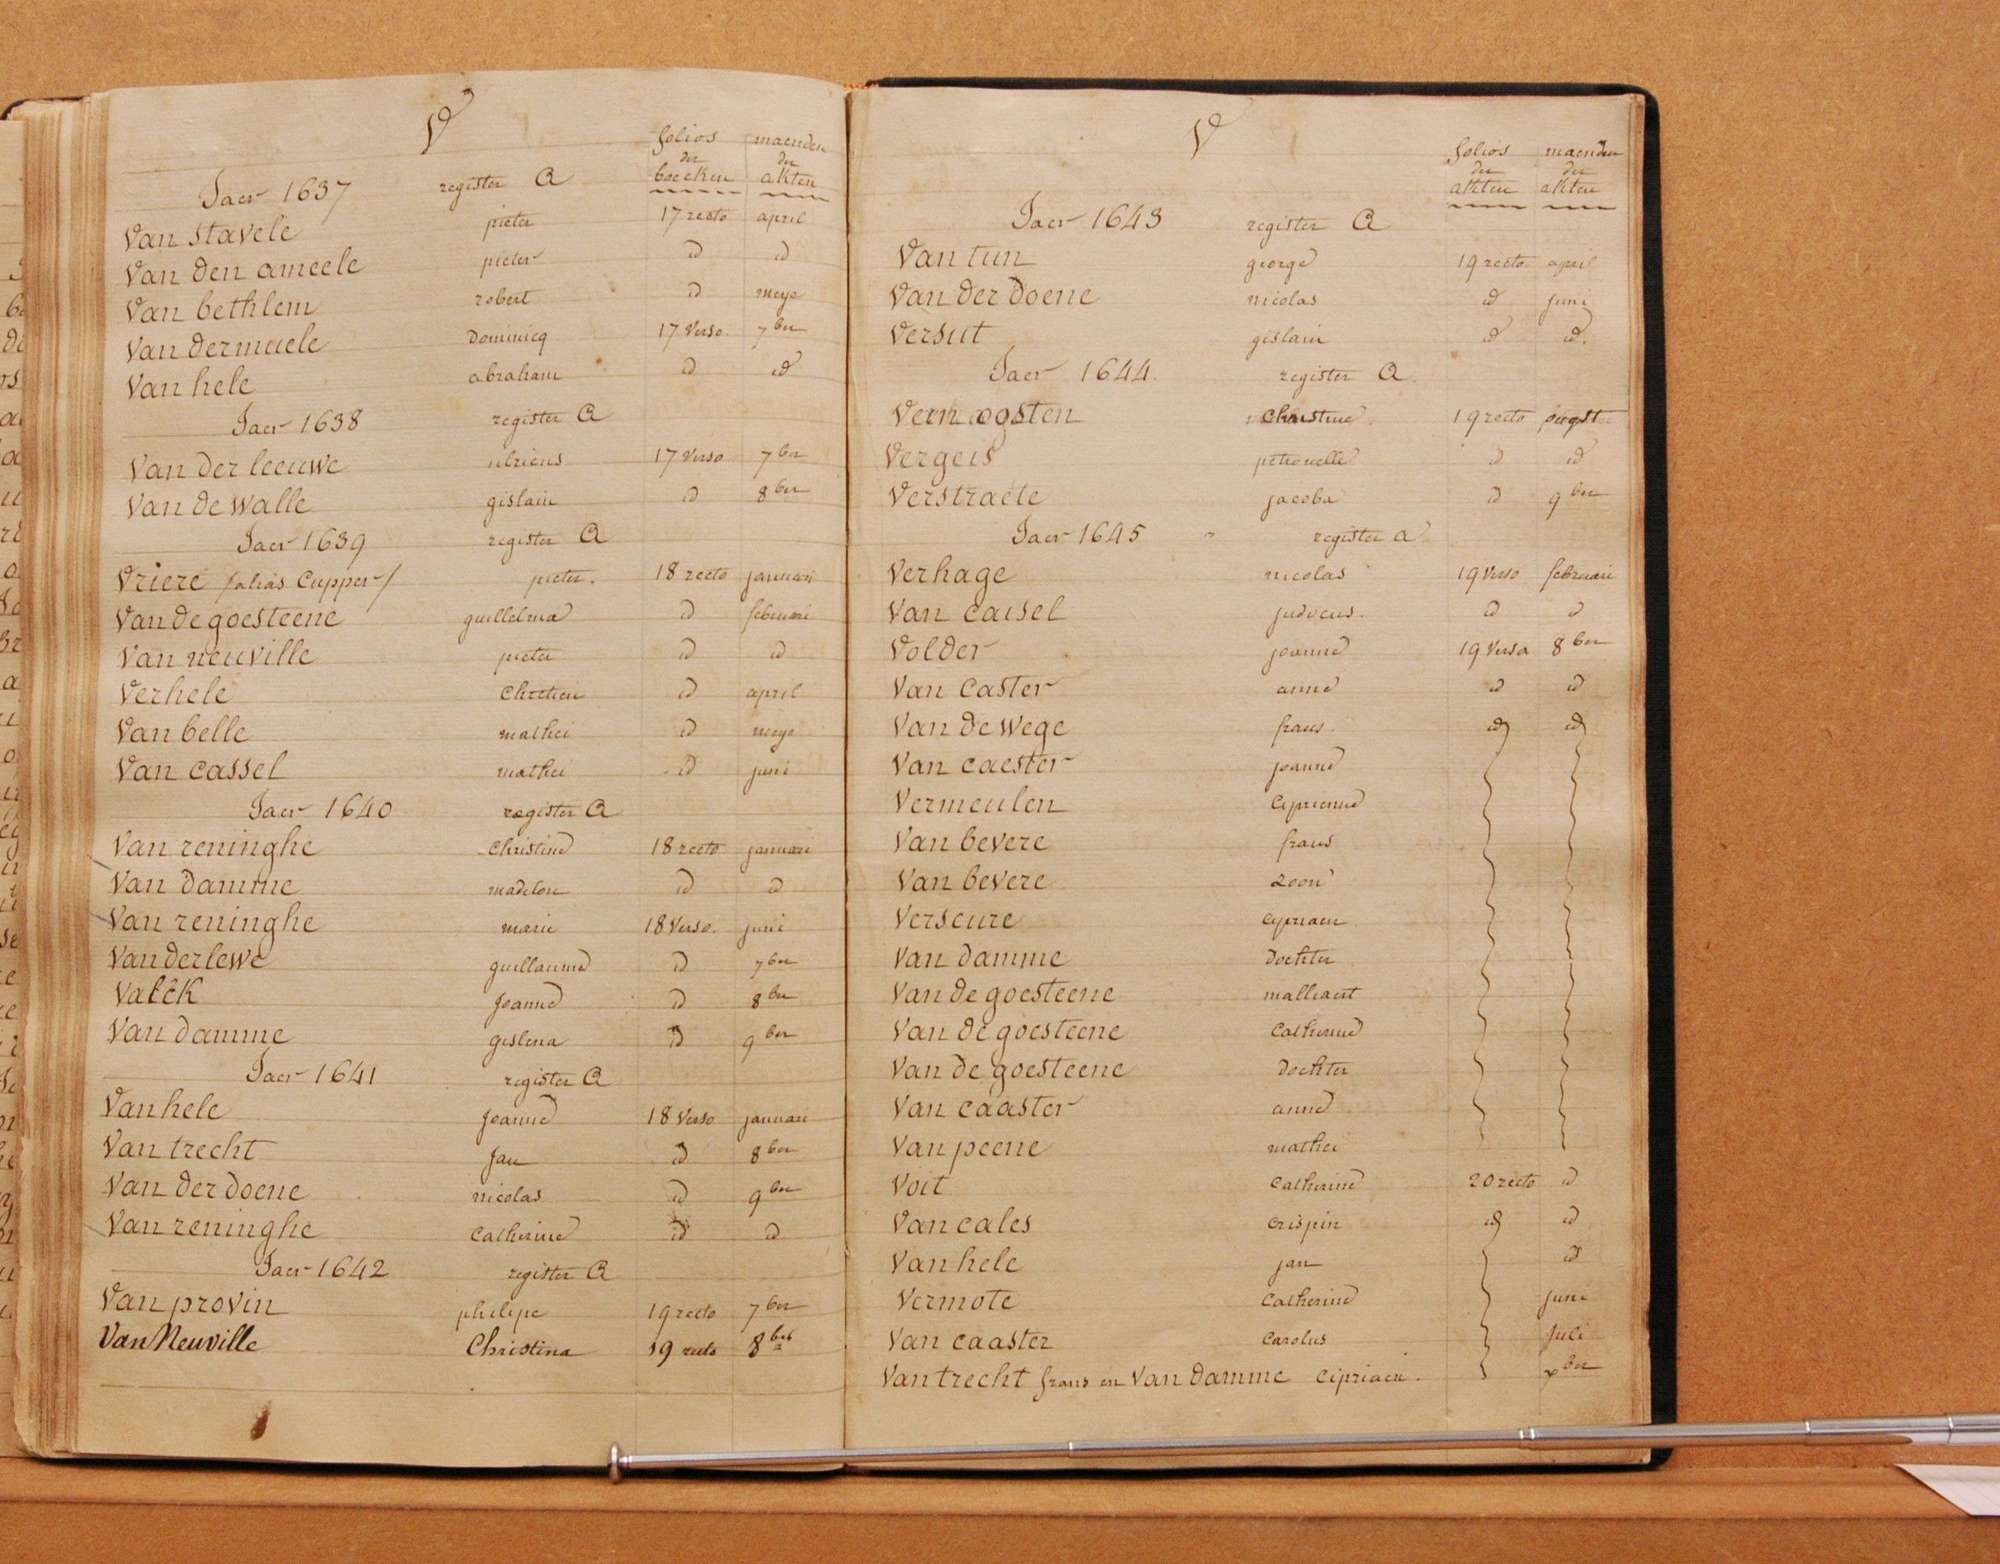 V
folios maenden
der der
boecken akten
Jaer 1637 register A
Van Stavele pieter 17 recto april
Van den ameele pieter id id
Van bethlem robert id meye
Van dermaele Dominicq 17 Verso 7ber
Van hele abraham id id
Jaer 1638 register A
Van der leeuwe ulricus 17 Verso 7ber
Van de Walle gislain id 8ber
Jaer 1639 register A
Vriere /alias Cupper/ pieter. 18 recto januari
Van de goesteene guillelma id februari
Van neuville pieter id id
Verhele Chretien id april
Van belle mathei id meye
Van cassel mathei id juni
Jaer 1640 register A
Van reninghe Christine 18 recto januari
Van Damme madelon id id
Van reninghe marie 18 Verso. juni
Van der lewe guillaume id 7ber
Valck Joanne id 8ber
Van Damme gislena id 9ber
Jaer 1641 register A
Van hele Joanne 18 Verso januari
Van trecht jan id 8ber
Van der doene nicolas id 9ber
Van reninghe Catherine id id
Jaer 1642 register A
Van provin philipe 19 recto 7ber
Van Neuville Christina 19 recto 8ber
V
folios maenden
der der
akten akten
Jaer 1643 register A
Van tun george 19 recto april
Van der Doene nicolas id juni
Versut gislain id id.
Jaer 1644. register A.
Vern oosten Christine 19 recto ougst
Vergeis petronelle id id
Verstraete jacoba id 9ber
Jaer 1645 register a
Verhage nicolas 19 Verso februari
Van caisel judocus. id id
Volder joanne 19 Verso 8ber
Van Caster anne id id
Van de Wege frans. id id
Van caester joanne
Vermeulen Ciprienne
Van bevere frans
Van bevere Zoon
Verscure cypriaen
Van Damme Dochter
Van de goesteene malliaert
Van de goesteene Catherine
Van de goesteene Dochter
Van caaster anne
Van peene mathei
Voit Catherine 20 recto id
Van cales Crispin id id
Van hele jan id
Vermote Catherine juni
Van caaster Carolus Juli
Van trecht frans en Van Damme Cipriaen. xber